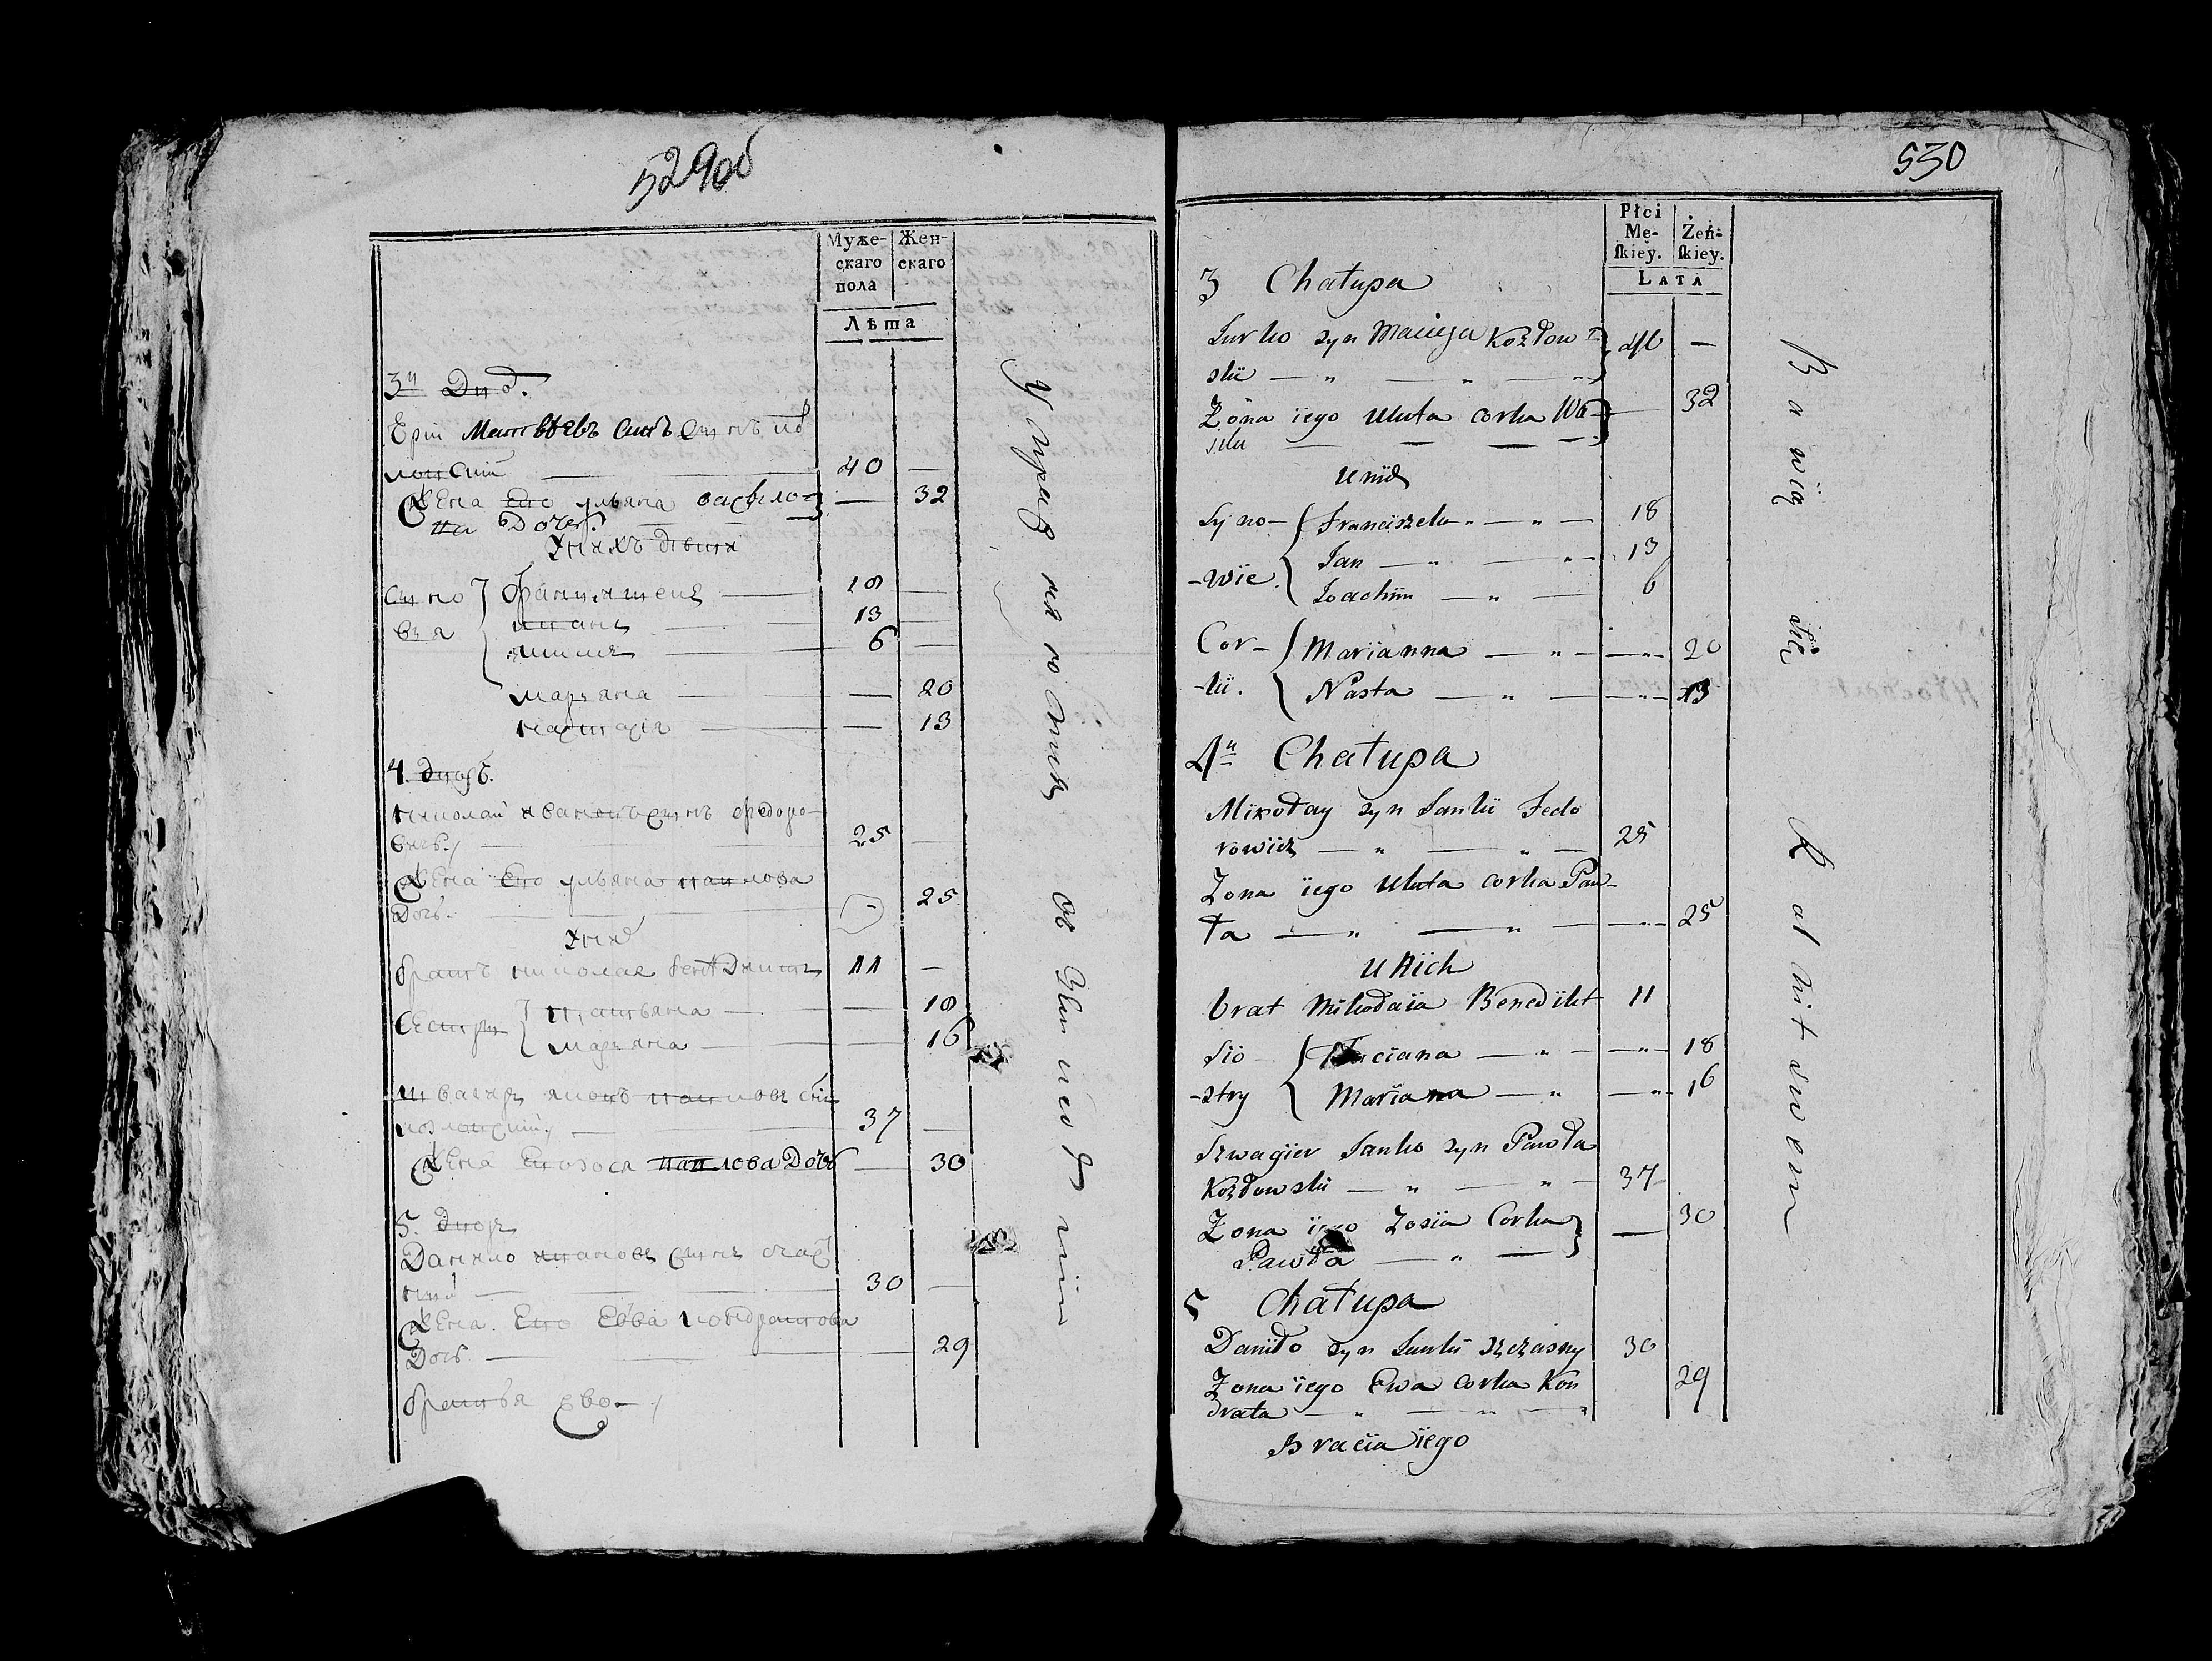 529об
Муже-
скаго
пола
Жен-
скаго
Лѣта
3й Двор.
40 —
Жена Его ульяна васило=
ва Дочер. — 32
Унихъ Дѣти
Сыно
вья
Францишекъ 18 —
иванъ 13 —
6 —
марьяна — 20
настасія — 13
4. двор.
николай ивановъ сынъ Федоро-
вичъ 25 —
Жена Его ульяна павлова
Дочь — 25
Уних
братъ николая бенедиктъ 11 —
Сестры
— 18
марьяна — 16
швагер янъ павловъ сынъ
козловскій 37 —
Жена Его зося павлова Дочь — 30
5. двор
Данило ивановъ сынъ
30 —
Жена Его Евва кондратова
Дочь — 29
братья ево
530
Płci
Mę-
skiey.
Żeń-
skiey.
LATA
3 Chałupa
Jurko syn Macieja Kozłow=
ski — 40 —
Żona iego Uluta corka Wa-
silu — 32
U nich
Syno-
-wie.
Franciszek 18
Jan 13
Joachim 6
Cor-
-ki.
Marianna 20
Nasta 13
4a Chałupa
Mikołay syn Janki Fedo
rowicz 25
Zona iego Uluta corka Paw-
ła 25
U Nich
brat Mikołaia Benedikt 11
Sio
-stry
18
Mariana 16
Szwagier Janko syn Pawła
Kozłowski 37
Zona iego Zosia Corka
Pawła — 30
5 Chałupa
Daniło syn Janki Szczasny 30
Zona iego Ewa corka Kon
drata 29
Bracia iego
Bawią się